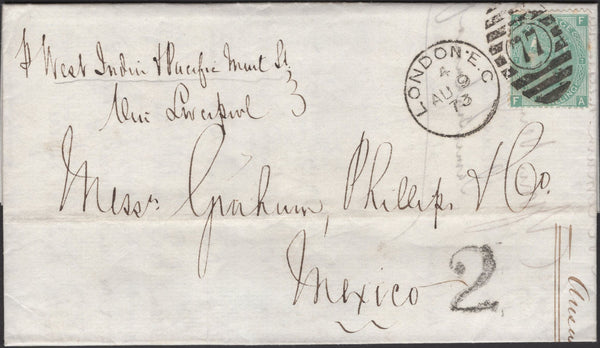 p West India & Pacific Mail St.
Via Liverpool
LONDON·E.C
4 9
AU
73
77
F
A
F
A
Messrs Graham, Phillips & Co.
Mexico
2